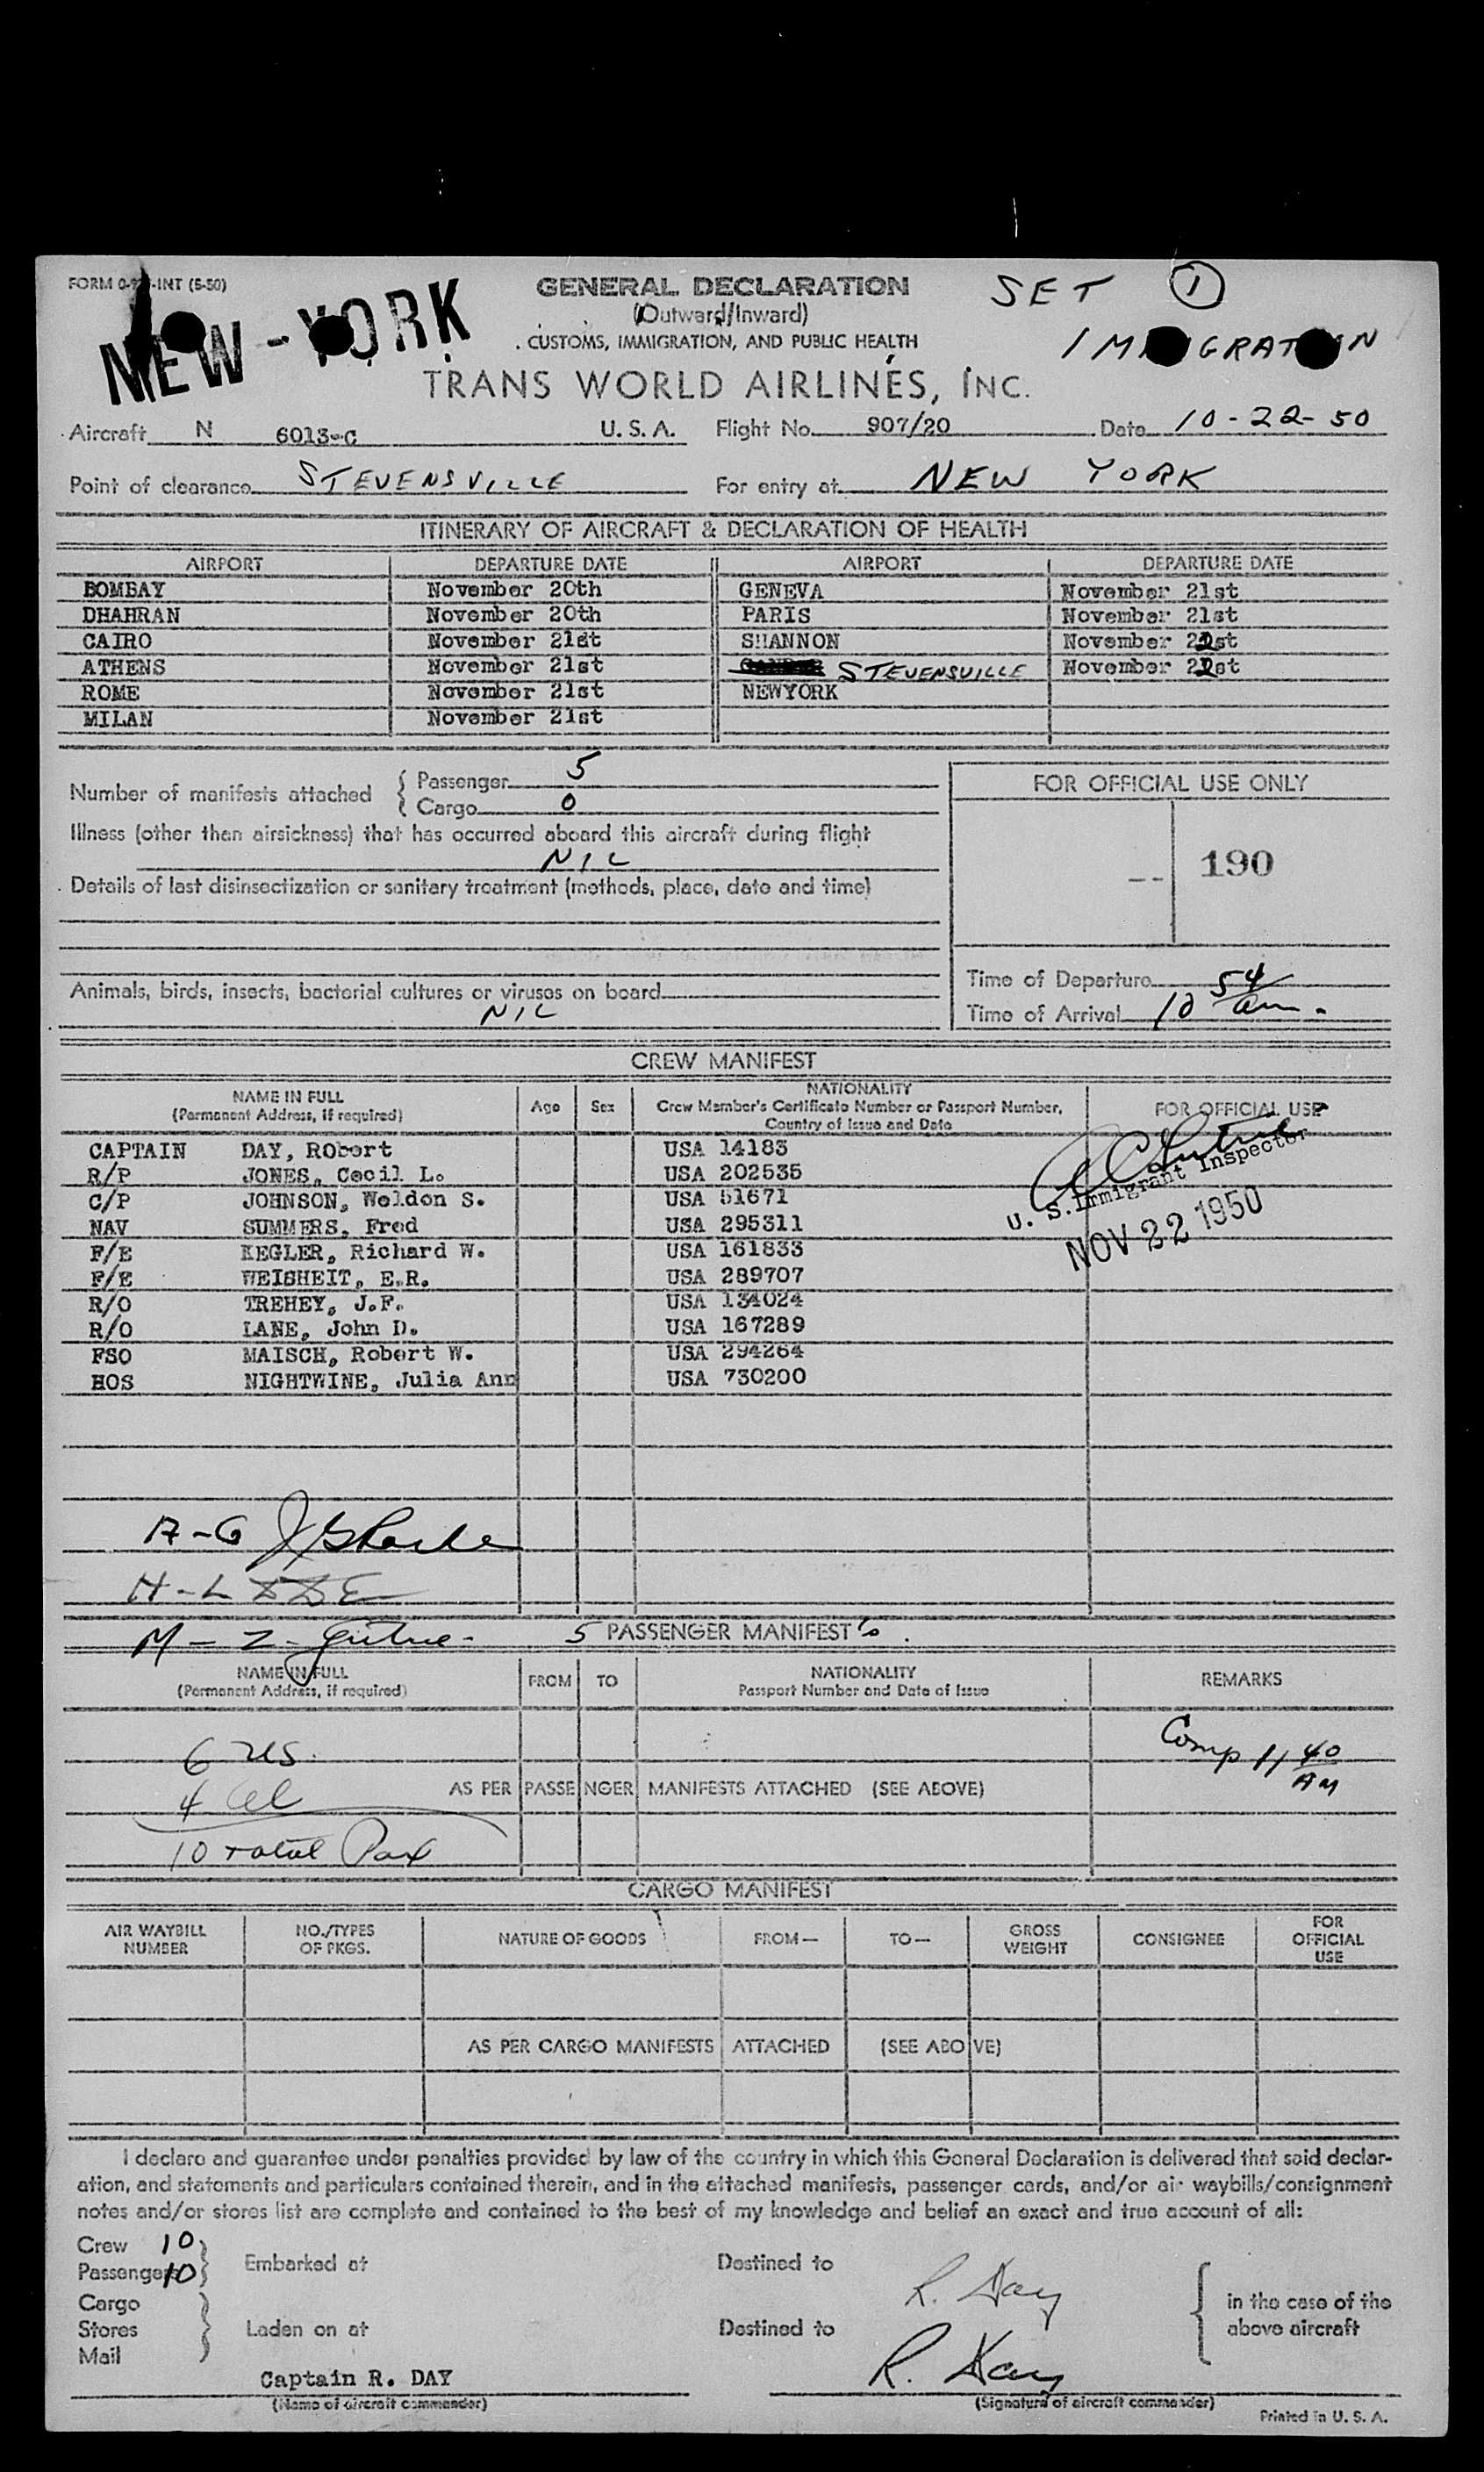 FORM 0-    -INT (5-50)
GENERAL DECLARATION
SET 1
(Outward/Inward)
NEW-YORK
CUSTOMS, IMMIGRATION, AND PUBLIC HEALTH
IMMIGRATION
TRANS WORLD AIRLINES, INC.
Aircraft N 6013-C U. S. A. Flight No. 907/20 Date 10-22-50
Point of clearance STEVENSVILLE For entry at NEW YORK
ITINERARY OF AIRCRAFT & DECLARATION OF HEALTH
AIRPORT DEPARTURE DATE AIRPORT DEPARTURE DATE
BOMBAY November 20th GENEVA November 21st
DHAHRAN November 20th PARIS November 21st
CAIRO November 21st SHANNON November 22st
ATHENS November 21st STEVENSVILLE November 22st
ROME November 21st NEWYORK
MILAN November 21st
Number of manifests attached { Passenger 5
Cargo 0
FOR OFFICIAL USE ONLY
Illness (other than airsickness) that has occurred aboard this aircraft during flight
NIL
-- 190
Details of last disinsectization or sanitary treatment (methods, place, date and time)
Time of Departure
Animals, birds, insects, bacterial cultures or viruses on board
NIL
Time of Arrival 10 54 am.
CREW MANIFEST
NAME IN FULL
(Permanent Address, if required)
Age Sex
NATIONALITY
Crew Member's Certificate Number or Passport Number,
Country of Issue and Date
FOR OFFICIAL USE
CAPTAIN DAY, RObert USA 14183
R/P JONES, Cecil L. USA 202535
C/P JOHNSON, Weldon S. USA 51671
NAV SUMMERS, Fred USA 295311
F/E KEGLER, Richard W. USA 161833
F/E WEISHEIT, E.R. USA 289707
R/O TREHEY, J.F. USA 134024
R/O LANE, John D. USA 167289
FSO MAISCH, Robert W. USA 294264
HOS NIGHTWINE, Julia Ann USA 730200
U. S. Immigrant Inspector
NOV 22 1950
A-G
H-L
M-Z-
5 PASSENGER MANIFEST's
NAME IN FULL
(Permanent Address, if required)
FROM TO
NATIONALITY
Passport Number and Date of Issue
REMARKS
6 US
Comp 11 40 AM
4 Al
AS PER PASSENGER MANIFESTS ATTACHED (SEE ABOVE)
10 total Pax
CARGO MANIFEST
AIR WAYBILL NUMBER
NO./TYPES OF PKGS.
NATURE OF GOODS
FROM—
TO—
GROSS WEIGHT
CONSIGNEE
FOR OFFICIAL USE
AS PER CARGO MANIFESTS ATTACHED (SEE ABOVE)
I declare and guarantee under penalties provided by law of the country in which this General Declaration is delivered that said declar-
ation, and statements and particulars contained therein, and in the attached manifests, passenger cards, and/or air waybills/consignment
notes and/or stores list are complete and contained to the best of my knowledge and belief an exact and true account of all:
Crew 10
Passengers 10
Embarked at Destined to R. Day
Cargo
Stores
Mail
Laden on at Destined to
in the case of the
above aircraft
Captain R. DAY R. Day
(Name of aircraft commander) (Signature of aircraft commander)
Printed in U. S. A.